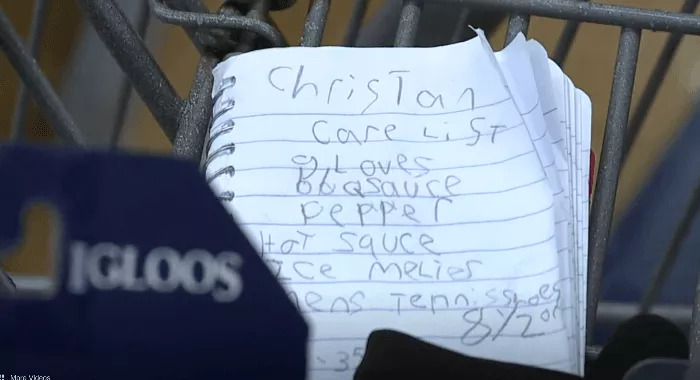 ChrisTan
Care LiST
gLoves
bbqsauce
pepper
HoT Sauce
Ice melies
mens Tennisshoes
8 1/2 or
IGLOOS
More Videos